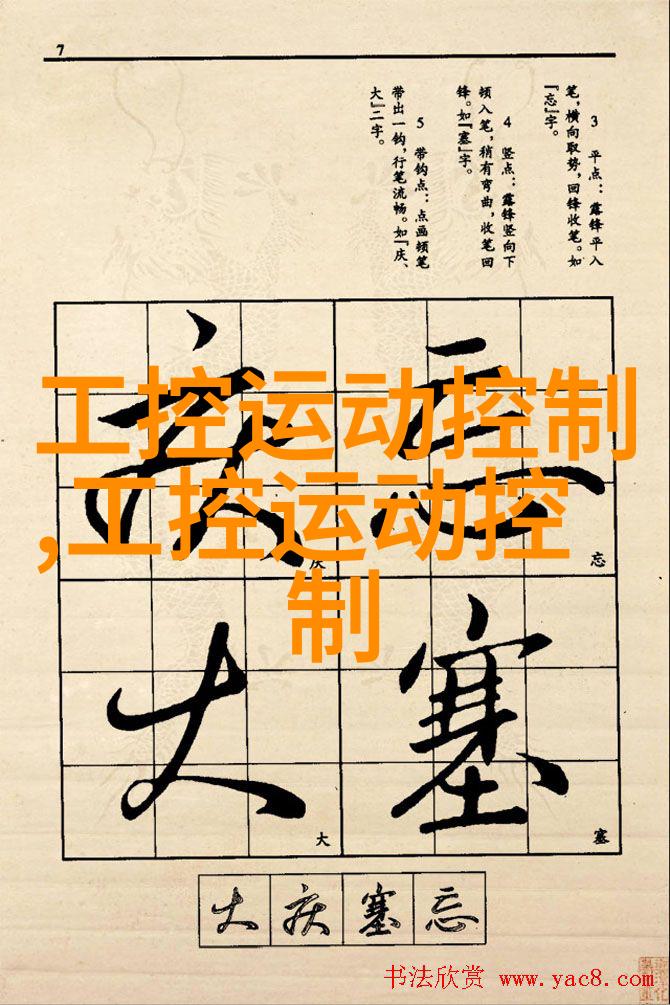 7
3 平点：露锋平入
笔，横向取势，回锋收笔。如
『忘』字。
4 竖点：露锋竖向下
顿入笔，稍有弯曲，收笔回
锋。如『塞』字。
5 带钩点：点画顿笔
带出一钩，行笔流畅。如『庆、
大』二字。
工控运动控制
,工控运动控
制
庆 忘
庆 忘
大 塞
大 塞
大 庆 塞 忘
书法欣赏 www.yac8.com